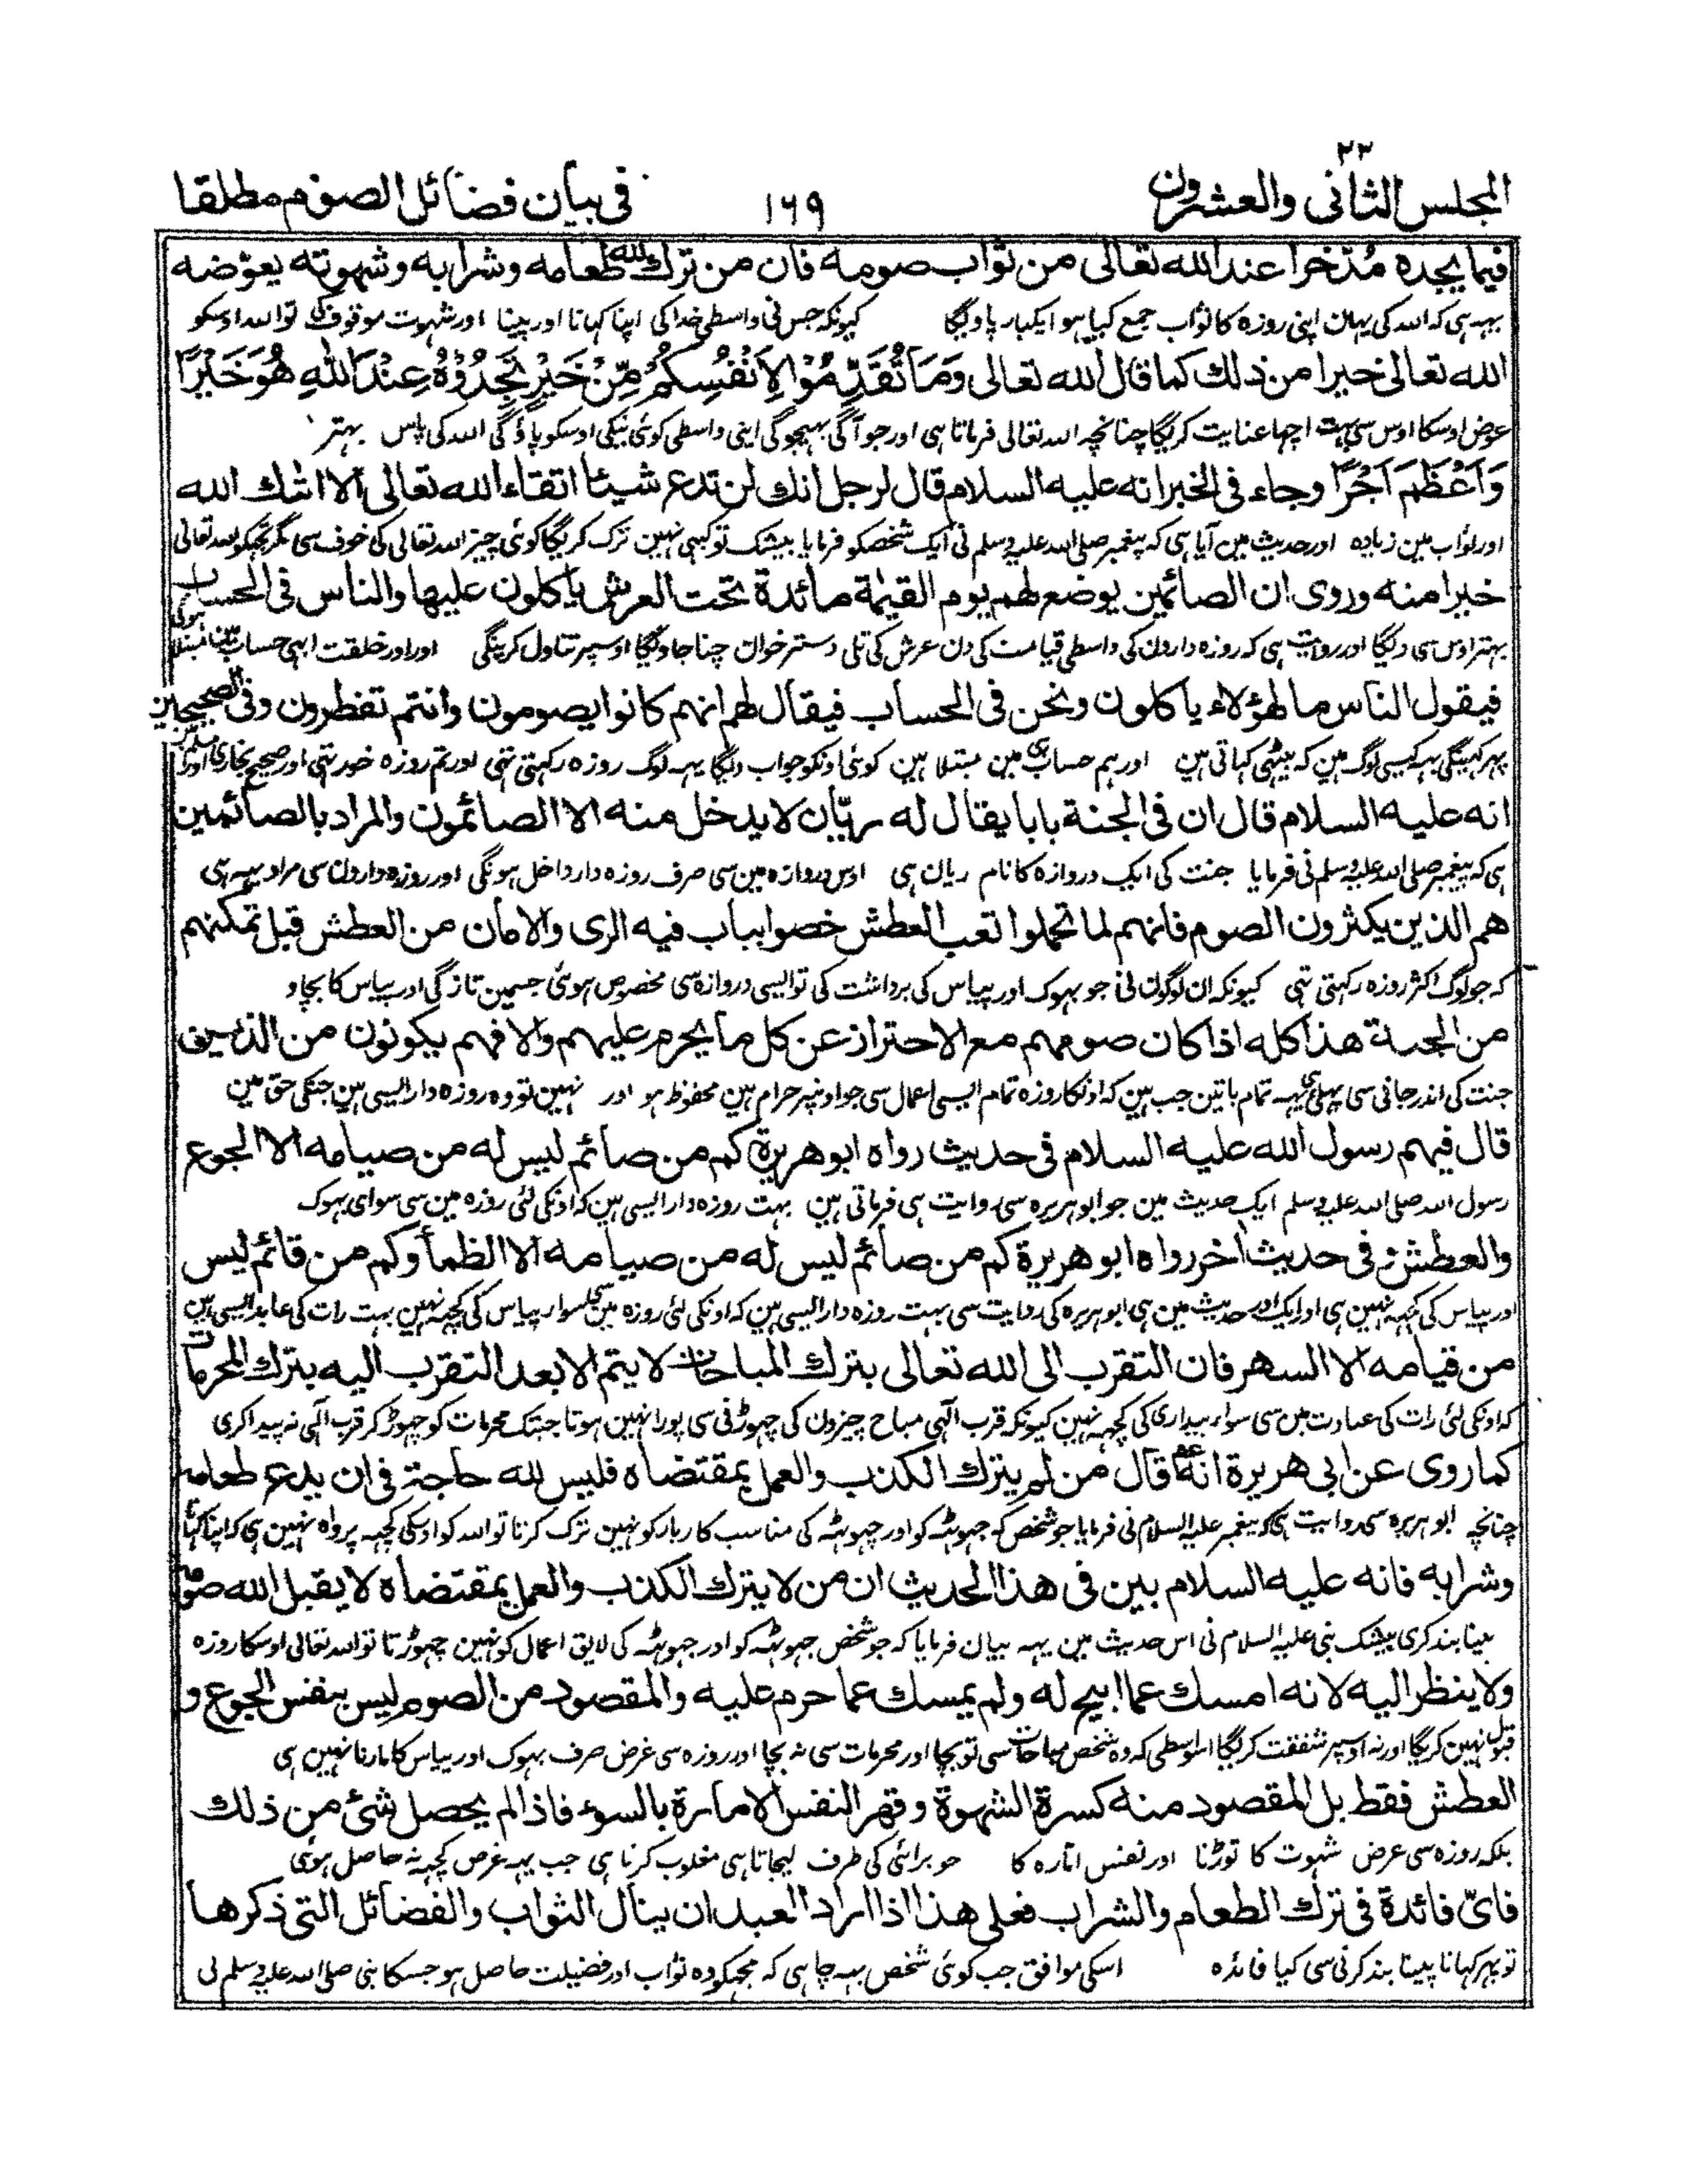 ٢٢
المجلس الثانی والعشرون ١٦٩ فی بیان فضائل الصوم مطلقا
فیما یجده مُدّخرا عند الله تعالی من ثواب صومه فان من ترك لله طعامه وشرابه وشهوته یعوّضه
یہہ ہی کہ اللہ کی یہان اپنی روزہ کا ثواب جمع کیا ہو ایکبار پاویگا کیونکہ جس نی واسطی خدا کی اپنا کہانا اور پینا اور شہوت موقوف کی تو اللہ اوسکو
الله تعالی خیرا من ذلك كما قال الله تعالی وَمَا تُقَدِّمُوْا لِاَنْفُسِكُمْ مِّنْ خَیْرٍ تَجِدُوْهُ عِنْدَ اللهِ هُوَ خَیْرًا
عوض اوسکا اوس سی بہت اچہا عنایت کریگا چنانچہ اللہ تعالی فرماتا ہی اور جو آگی بہیجوگی اپنی واسطی کوئی نیکی اوسکو پاؤگی اللہ کی پاس بہتر
وَاَعْظَمَ اَجْرًا وجاء فی الخبر انه علیه السلام قال لرجل انك لن تدع شیئا اتقاء الله تعالی الا اتٰك الله
اور ثواب مین زیادہ اور حدیث مین آیا ہی کہ پیغمبر صلی اللہ علیہ وسلم نی ایک شخصکو فرمایا بیشک تو کبہی نہین ترک کریگا کوئی چیز اللہ تعالی کی خوف سی مگر تجہکو اللہ تعالی
خیرا منه وروی ان الصائمین یوضع لهم یوم القیٰمة مائدة تحت العرش یاکلون علیها والناس فی الحساب
بہتر اوس سی دیگا اور روایت ہی کہ روزہ دارون کی واسطی قیامت کی دن عرش کی تلی دسترخوان چنا جاویگا اوسپر تناول کرینگی اور اور خلقت ابہی حساب مین مبتلا ہوگی
فیقول الناس ما لهؤلاء یاکلون ونحن فی الحساب فیقال لهم انهم كانوا یصومون وانتم تفطرون وفی الصحیحین
پہر کہینگی یہہ کیسی لوگ ہین کہ بیٹہی کہاتی ہین اور ہم حساب ہی مین مبتلا ہین کوئی اونکو جواب دیگا یہہ لوگ روزہ رکہتی تہی اور تم روزہ خور تہی اور صحیح بخاری اور مسلم مین
انه علیه السلام قال ان فی الجنة بابا یقال له ریّان لا یدخل منه الا الصائمون والمراد بالصائمین
ہی کہ پیغمبر صلی اللہ علیہ وسلم نی فرمایا جنت کی ایک دروازہ کا نام ریان ہی اوس دروازہ مین سی صرف روزہ دار داخل ہونگی اور روزہ دارون سی مراد یہہ ہی
هم الذین یكثرون الصوم فانهم لما تحملوا تعب العطش خصوا بباب فیه الری والامان من العطش قبل تمكنهم
کہ جو لوگ اکثر روزہ رکہتی تہی کیونکہ ان لوگون نی جو بہوک اور پیاس کی برداشت کی تو ایسی دروازہ سی مخصوص ہوئی جسمین تازگی اور پیاس کا بچاو
من الجنة هذا كله اذا كان صومهم مع الاحتراز عن كل ما یحرم علیهم والا فهم یكونون من الذین
جنت کی اندر جانی سی پہلی ہی یہہ تمام باتین جب ہین کہ اونکا روزہ تمام ایسی اعمال سی جو اونپر حرام ہین محفوظ ہو اور نہین تو وہ روزہ دار ایسی ہین جنکی حق مین
قال فیهم رسول الله علیه السلام فی حدیث رواه ابو هریرة كم من صائم لیس له من صیامه الا الجوع
رسول اللہ صلی اللہ علیہ وسلم ایک حدیث مین جو ابو ہریرہ سی روایت ہی فرماتی ہین بہت روزہ دار ایسی ہین کہ اونکی لئی روزہ مین سی سوای بہوک
والعطش وفی حدیث اخر رواه ابو هریرة كم من صائم لیس له من صیامه الا الظمأ وكم من قائم لیس
اور پیاس کی کچہہ نہین ہی اور ایک اور حدیث مین ہی ابو ہریرہ کی روایت سی بہت روزہ دار ایسی ہین کہ اونکی لئی روزہ مین سی سوار پیاس کی کچہہ نہین بہت رات کی عابد ایسی ہین
من قیامه الا السهر فان التقرب الی الله تعالی بترك المباحات لا یتم الا بعد التقرب الیه بترك المحرمات
کہ اونکی لئی رات کی عبادت مین سی سواء بیداری کی کچہہ نہین کیونکہ قرب الہی مباح چیزون کی چہوڑنی سی پورا نہین ہوتا جبتک محرمات کو چہوڑ کر قرب الہی نہ پیدا کری
كما روی عن ابی هریرة انه عم قال من لم یترك الكذب والعمل بمقتضاه فلیس لله حاجة فی ان یدع طعامه
چنانچہ ابو ہریرہ سی روایت ہی کہ پیغمبر علیہ السلام نی فرمایا جو شخص کہ جہوٹہہ کو اور جہوٹہہ کی مناسب کاربار کو نہین ترک کرتا تو اللہ کو اوسکی کچہہ پرواہ نہین ہی کہ اپنا کہانا
وشرابه فانه علیه السلام بین فی هذا الحدیث ان من لا یترك الكذب والعمل بمقتضاه لا یقبل الله صومه
پینا بند کری بیشک نبی علیہ السلام نی اس حدیث مین یہہ بیان فرمایا کہ جو شخص جہوٹہہ کو اور جہوٹہہ کی لایق اعمال کو نہین چہوڑتا تو اللہ تعالی اوسکا روزہ
ولا ینظر الیه لانه امسك عما ابیح له ولم یمسك عما حرم علیه والمقصود من الصوم لیس بنفس الجوع و
قبول نہین کریگا اور نہ اوسپر شفقت کریگا اسواسطی کہ وہ شخص مباحات سی تو بچا اور محرمات سی نہ بچا اور روزہ سی غرض صرف بہوک اور پیاس کا مارنا نہین ہی
العطش فقط بل المقصود منه كسرة الشهوة وقهر النفس الامارة بالسوء فاذا لم یحصل شئ من ذلك
بلکہ روزہ سی غرض شہوت کا توڑنا اور نفس امارہ کا جو برائی کی طرف لیجاتا ہی مغلوب کرنا ہی جب یہہ غرض کچہہ نہ حاصل ہوئی
فایّ فائدة فی ترك الطعام والشراب فعلی هذا اذا اراد العبد ان ینال الثواب والفضائل التی ذكرها
تو پہر کہانا پینا بند کرنی سی کیا فائدہ اسکی موافق جب کوئی شخص یہہ چاہی کہ مجہکو وہ ثواب اور فضیلت حاصل ہو جسکا نبی صلی اللہ علیہ وسلم نی